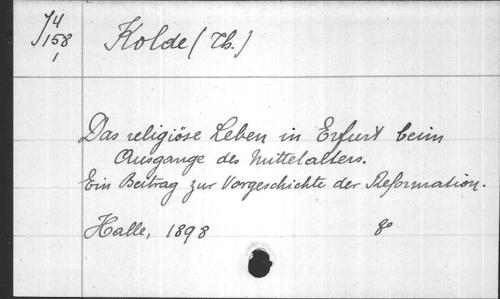 J4
158
1
Kolde (Th.)
Das religiöse Leben in Erfurt beim
Ausgange des Mittelalters.
Ein Beitrag zur Vorgeschichte der Reformation.
Halle, 1898
8o